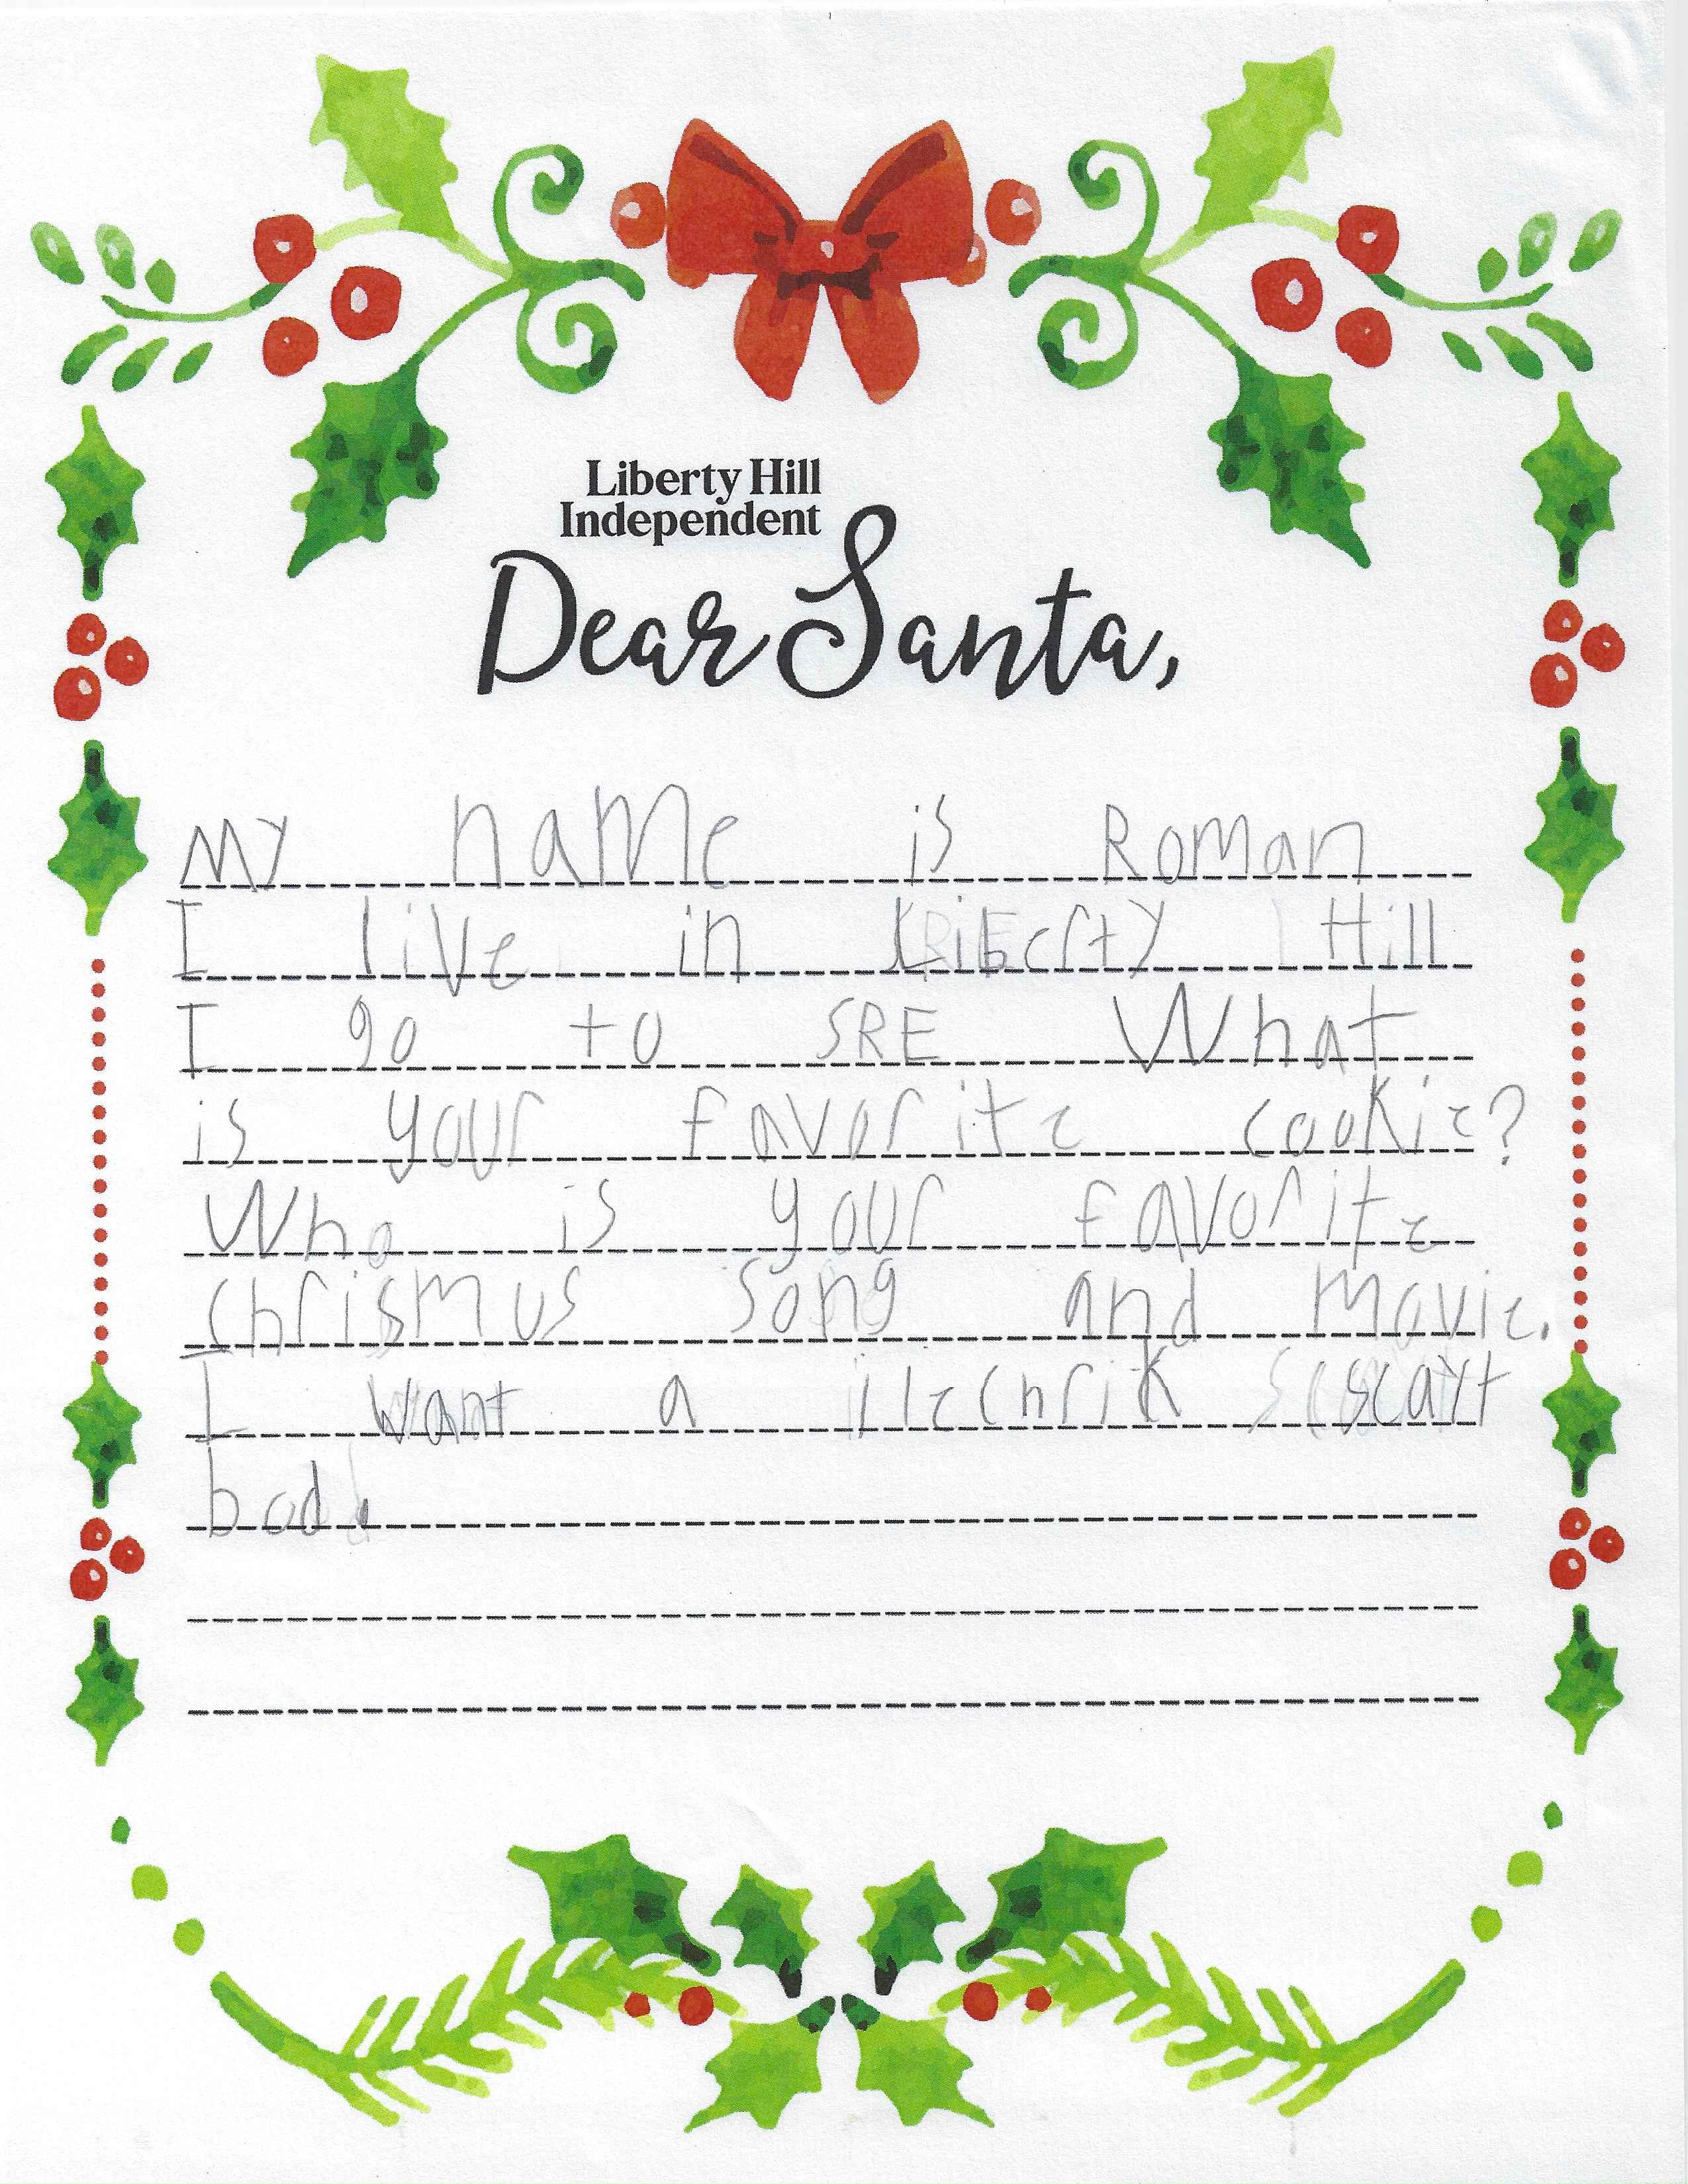 Liberty Hill
Independent
Dear Santa,
My name is Roman
I live in Liberty Hill
I go to SRE What
is your favorite cookie?
Who is your favorite
chrismus song and movie.
I want a ilechrik scayt
bod.